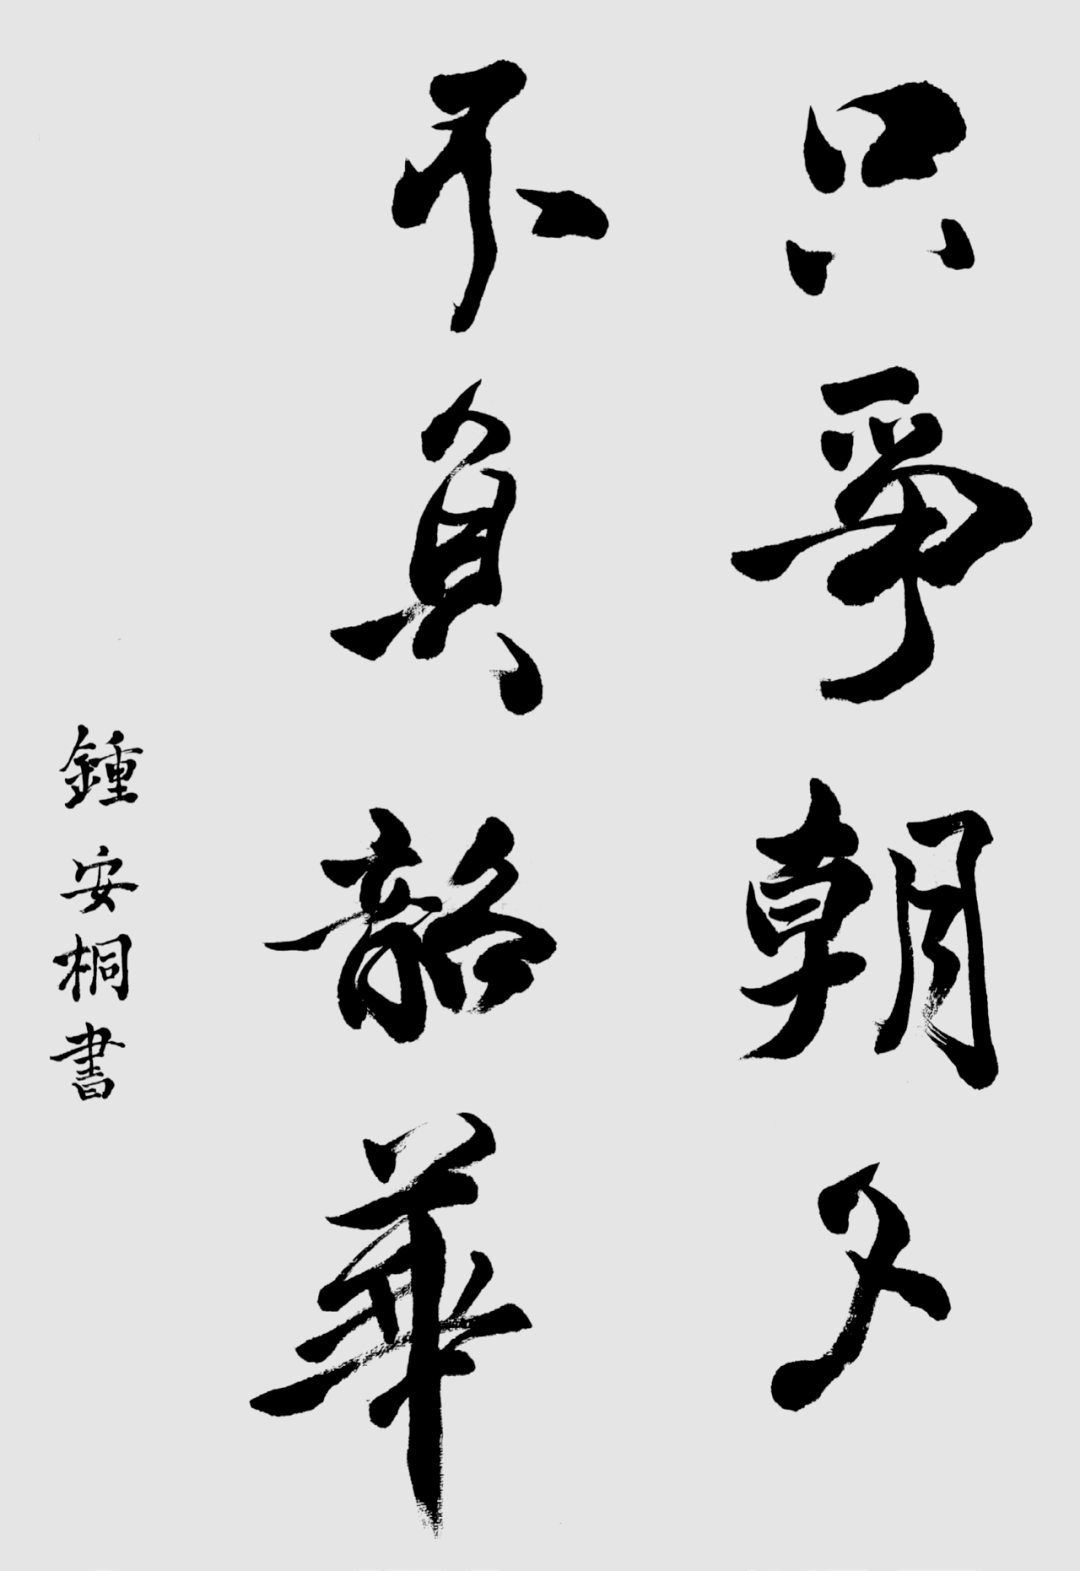 只爭朝夕
不負韶華
鍾安桐書